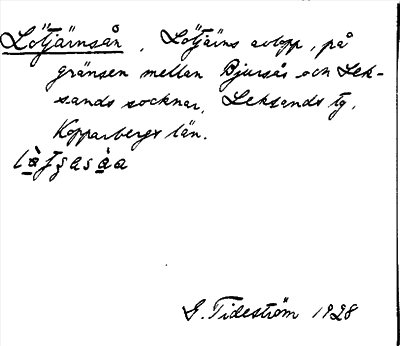 Lötjärnsån, Lötjärns avlopp, på
gränsen mellan Bjursås och Lek-
sands socknar, Leksands tg,
Kopparbergs län.
G. Tideström 1928